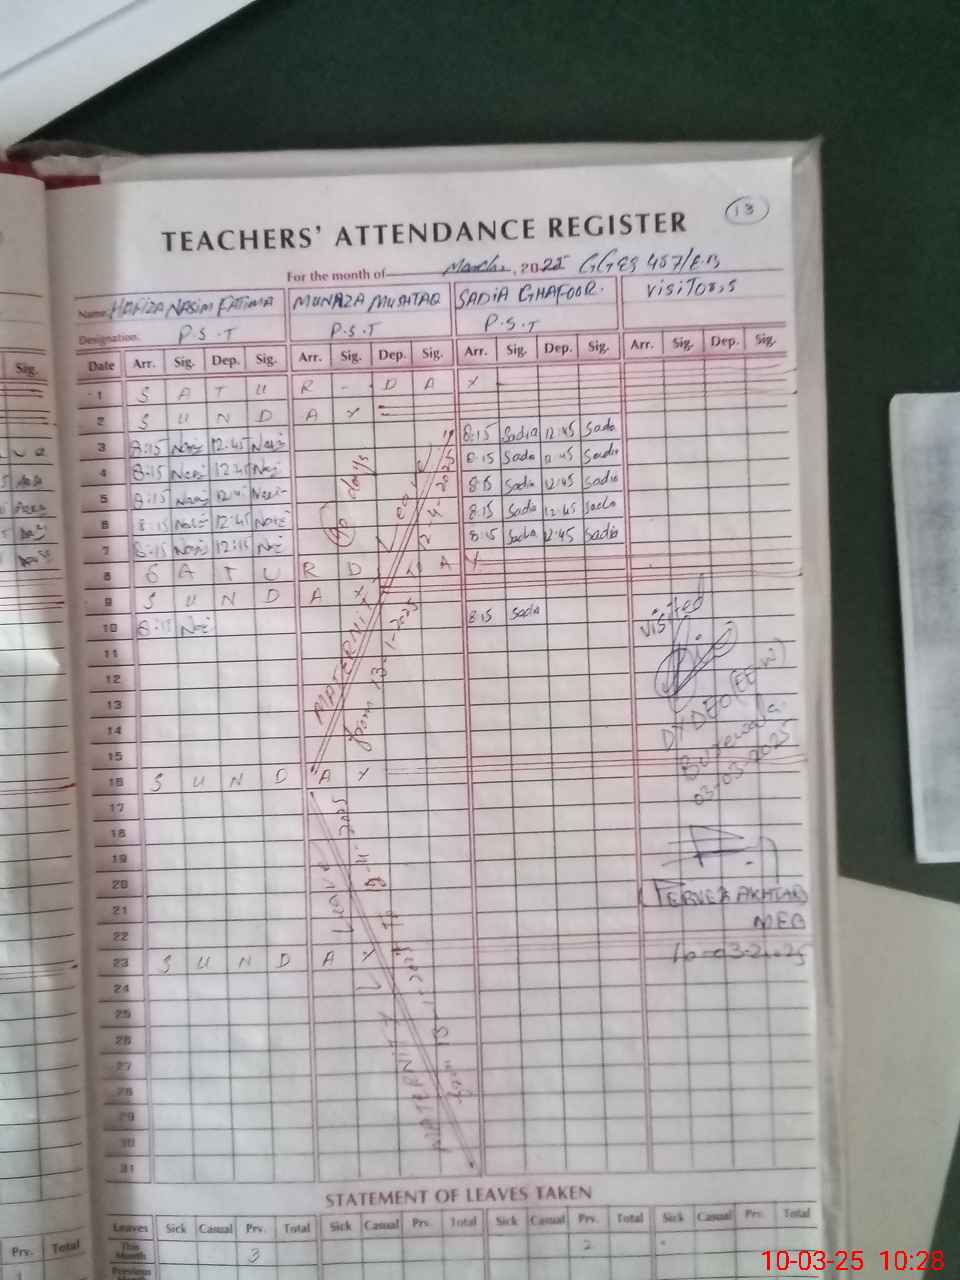 13
TEACHERS' ATTENDANCE REGISTER
For the month of March, 2025 GGES 457/E.B
Name HAFIZA NASIM FATIMA MUNAZA MUSHTAQ SADIA GHAFOOR. VISITORS
Designation. P.S.T P.S.T P.S.T
Sig. Date Arr. Sig. Dep. Sig. Arr. Sig. Dep. Sig. Arr. Sig. Dep. Sig. Arr. Sig. Dep. Sig.
1 S A T U R - D A Y
2 S U N D A Y
3 8:15 12:45 8:15 Sadia 12:45 Sada
4 8:15 12:45 8:15 Sada 12:45 Sadia
5 8:15 12:45 8:15 Sadia 12:45 Sadia
6 8:15 12:45 8:15 Sada 12:45 Sada
7 8:15 12:45 8:15 Sada 12:45 Sadia
8 S A T U R D A Y
9 S U N D A Y
10 8:15 8:15 Sada
11
12
13
14
15
16 S U N D A Y
17
18
19
20
21
22
23 S U N D A Y
24
25
26
27
28
29
30
31
days
MATERNITY
from 13-1-2025
MATERNITY Leave
from 13-1-2025 To
visited
DY DEO (EE-W)
Burewala.
03-03-2025
(PERVEZ AKHTAR)
MEA
10-03-2025
STATEMENT OF LEAVES TAKEN
Leaves Sick Casual Prv. Total Sick Casual Prv. Total Sick Casual Prv. Total Sick Casual Prv. Total
Prv. Total This Month 3 2
Previous
10-03-25 10:28